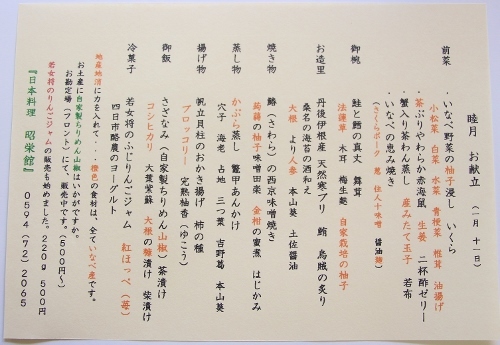 睦月 お献立 (一月 十一日)
前菜
いなべ野菜の柚子浸し いくら
小松菜 白菜 水菜 青梗菜 椎茸 油揚げ
茶ぶりやわらか赤海鼠 生姜 二杯酢ゼリー
蟹入り茶わん蒸し 産みたて玉子 若布
・いなべの恵み焼き
(さくらポーク 葱 住人十味噌 醤油糖)
御椀
鮭と鱈の真丈 舞茸
法蓮草 木耳 梅生麩 自家栽培の柚子
お造里
丹後伊根産 天然寒ブリ 鮪 烏賊の炙り
桑名の海苔の酒和え
大根 より人参 本山葵 土佐醤油
焼き物
鰆(さわら)の西京味噌焼き
蒟蒻の柚子味噌田楽 金柑の蜜煮 はじかみ
蒸し物
かぶら蒸し 鼈甲あんかけ
穴子 海老 占地 三つ葉 吉野葛 本山葵
揚げ物
帆立貝柱のおかき揚げ 柿の種
ブロッコリー 完熟柚香(ゆこう)
御飯
さざなみ(自家製ちりめん山椒)茶漬け
コシヒカリ 大葉紫蘇 大根の糠漬け 柴漬け
冷菓子
若女将のふじりんごジャム 紅ほっぺ(苺)
四日市酪農のヨーグルト
地産地消に力を入れて・・・橙色の食材は、全ていなべ産です。
お土産に自家製ちりめん山椒はいかがですか。
お勘定場(フロント)にて、販売中です。(500円~)
若女将のりんごジャムの販売も始めました。220g 500円
『日本料理 昭栄館』 0594(72)2065